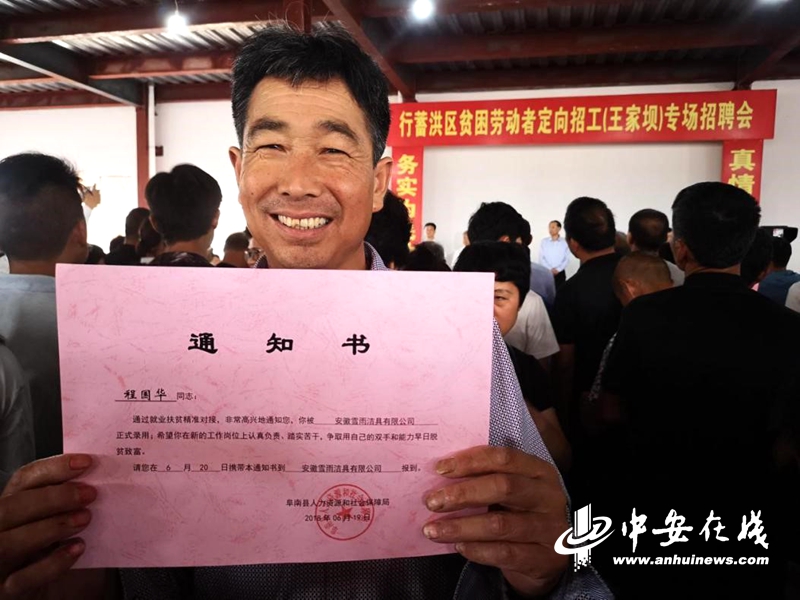 行蓄洪区贫困劳动者定向招工(王家坝)专场招聘会
务实
真情
通知书
程国华同志：
通过就业扶贫精准对接，非常高兴地通知您，你被 安徽雪雨洁具有限公司
正式录用；希望你在新的工作岗位上认真负责、踏实苦干，争取用自己的双手和能力早日脱
贫致富。
请您在 6 月 20 日携带本通知书到 安徽雪雨洁具有限公司 报到。
阜南县人力资源和社会保障局
2018年06月19日
中安在线
www.anhuinews.com